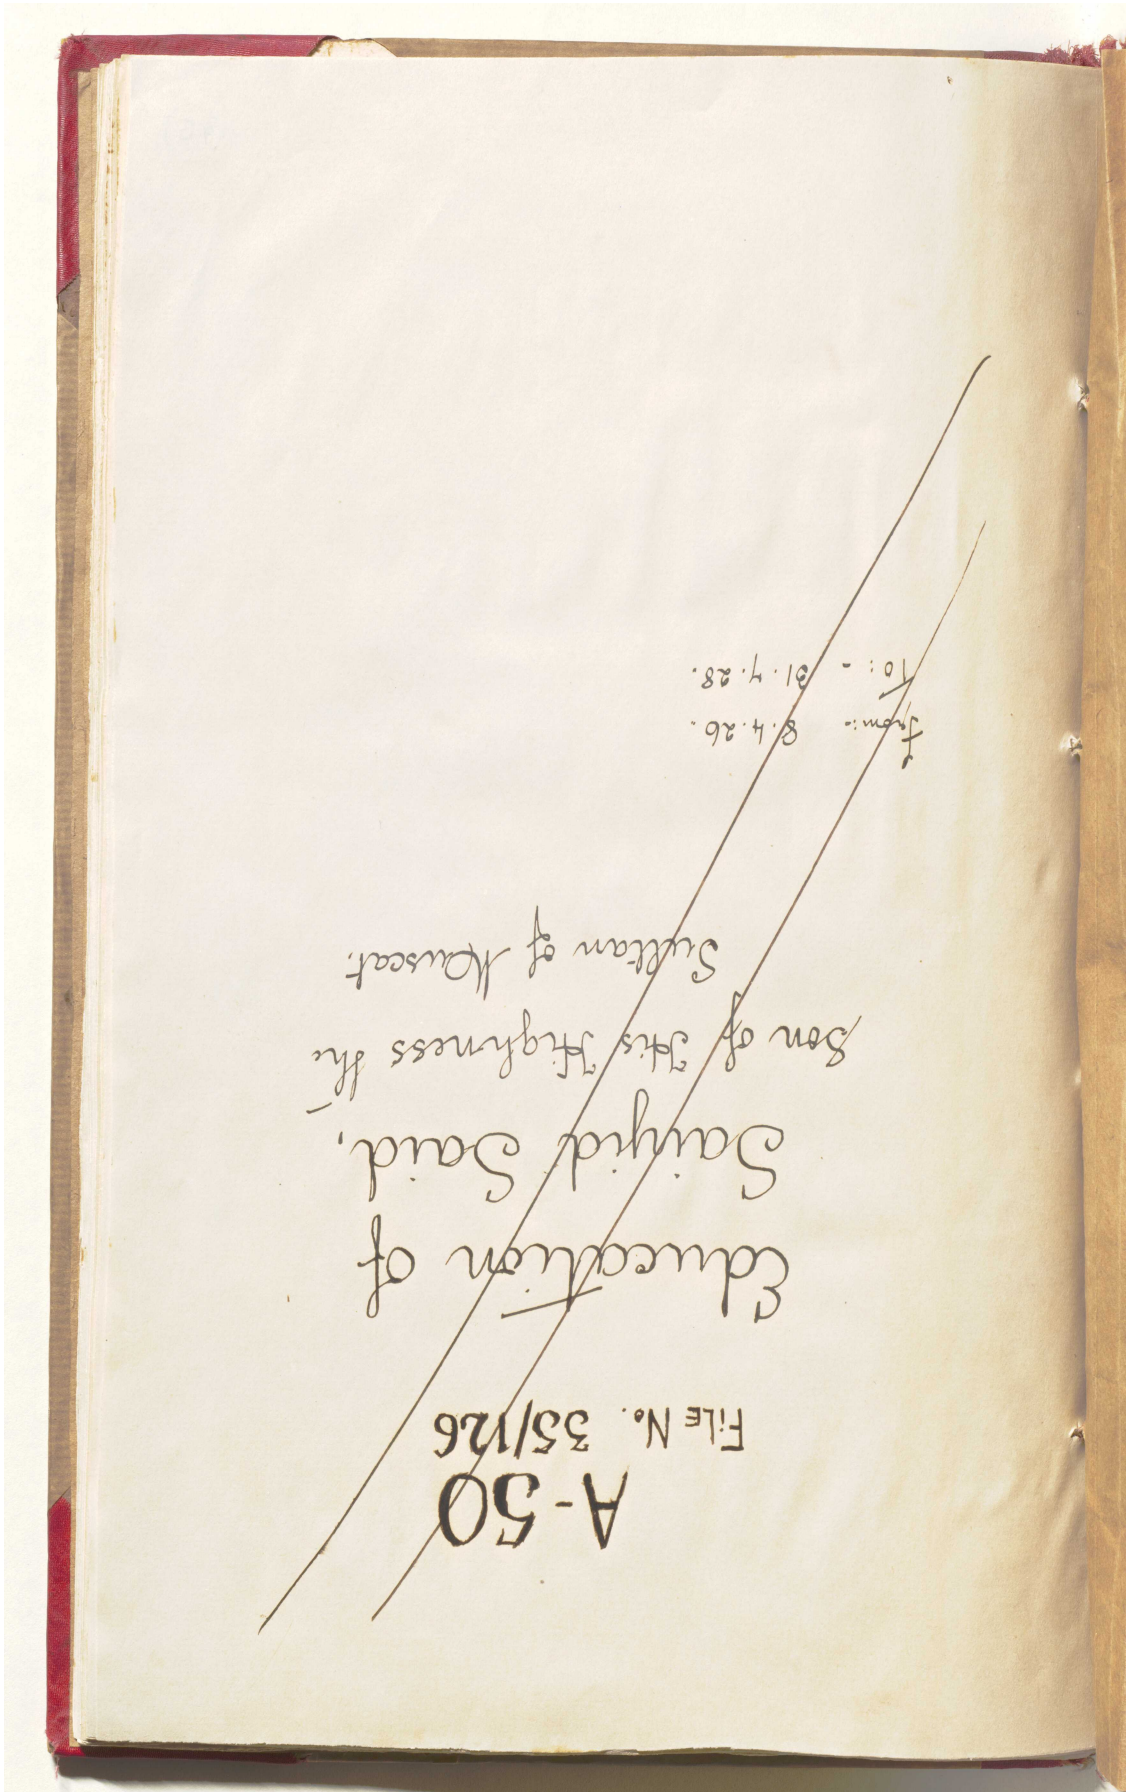 A-50
FILE No. 35/126
Education of
Saiyid Said,
Son of His Highness the
Sultan of Mauscat.
From:- 8.4.26.
To:- 31.7.28.